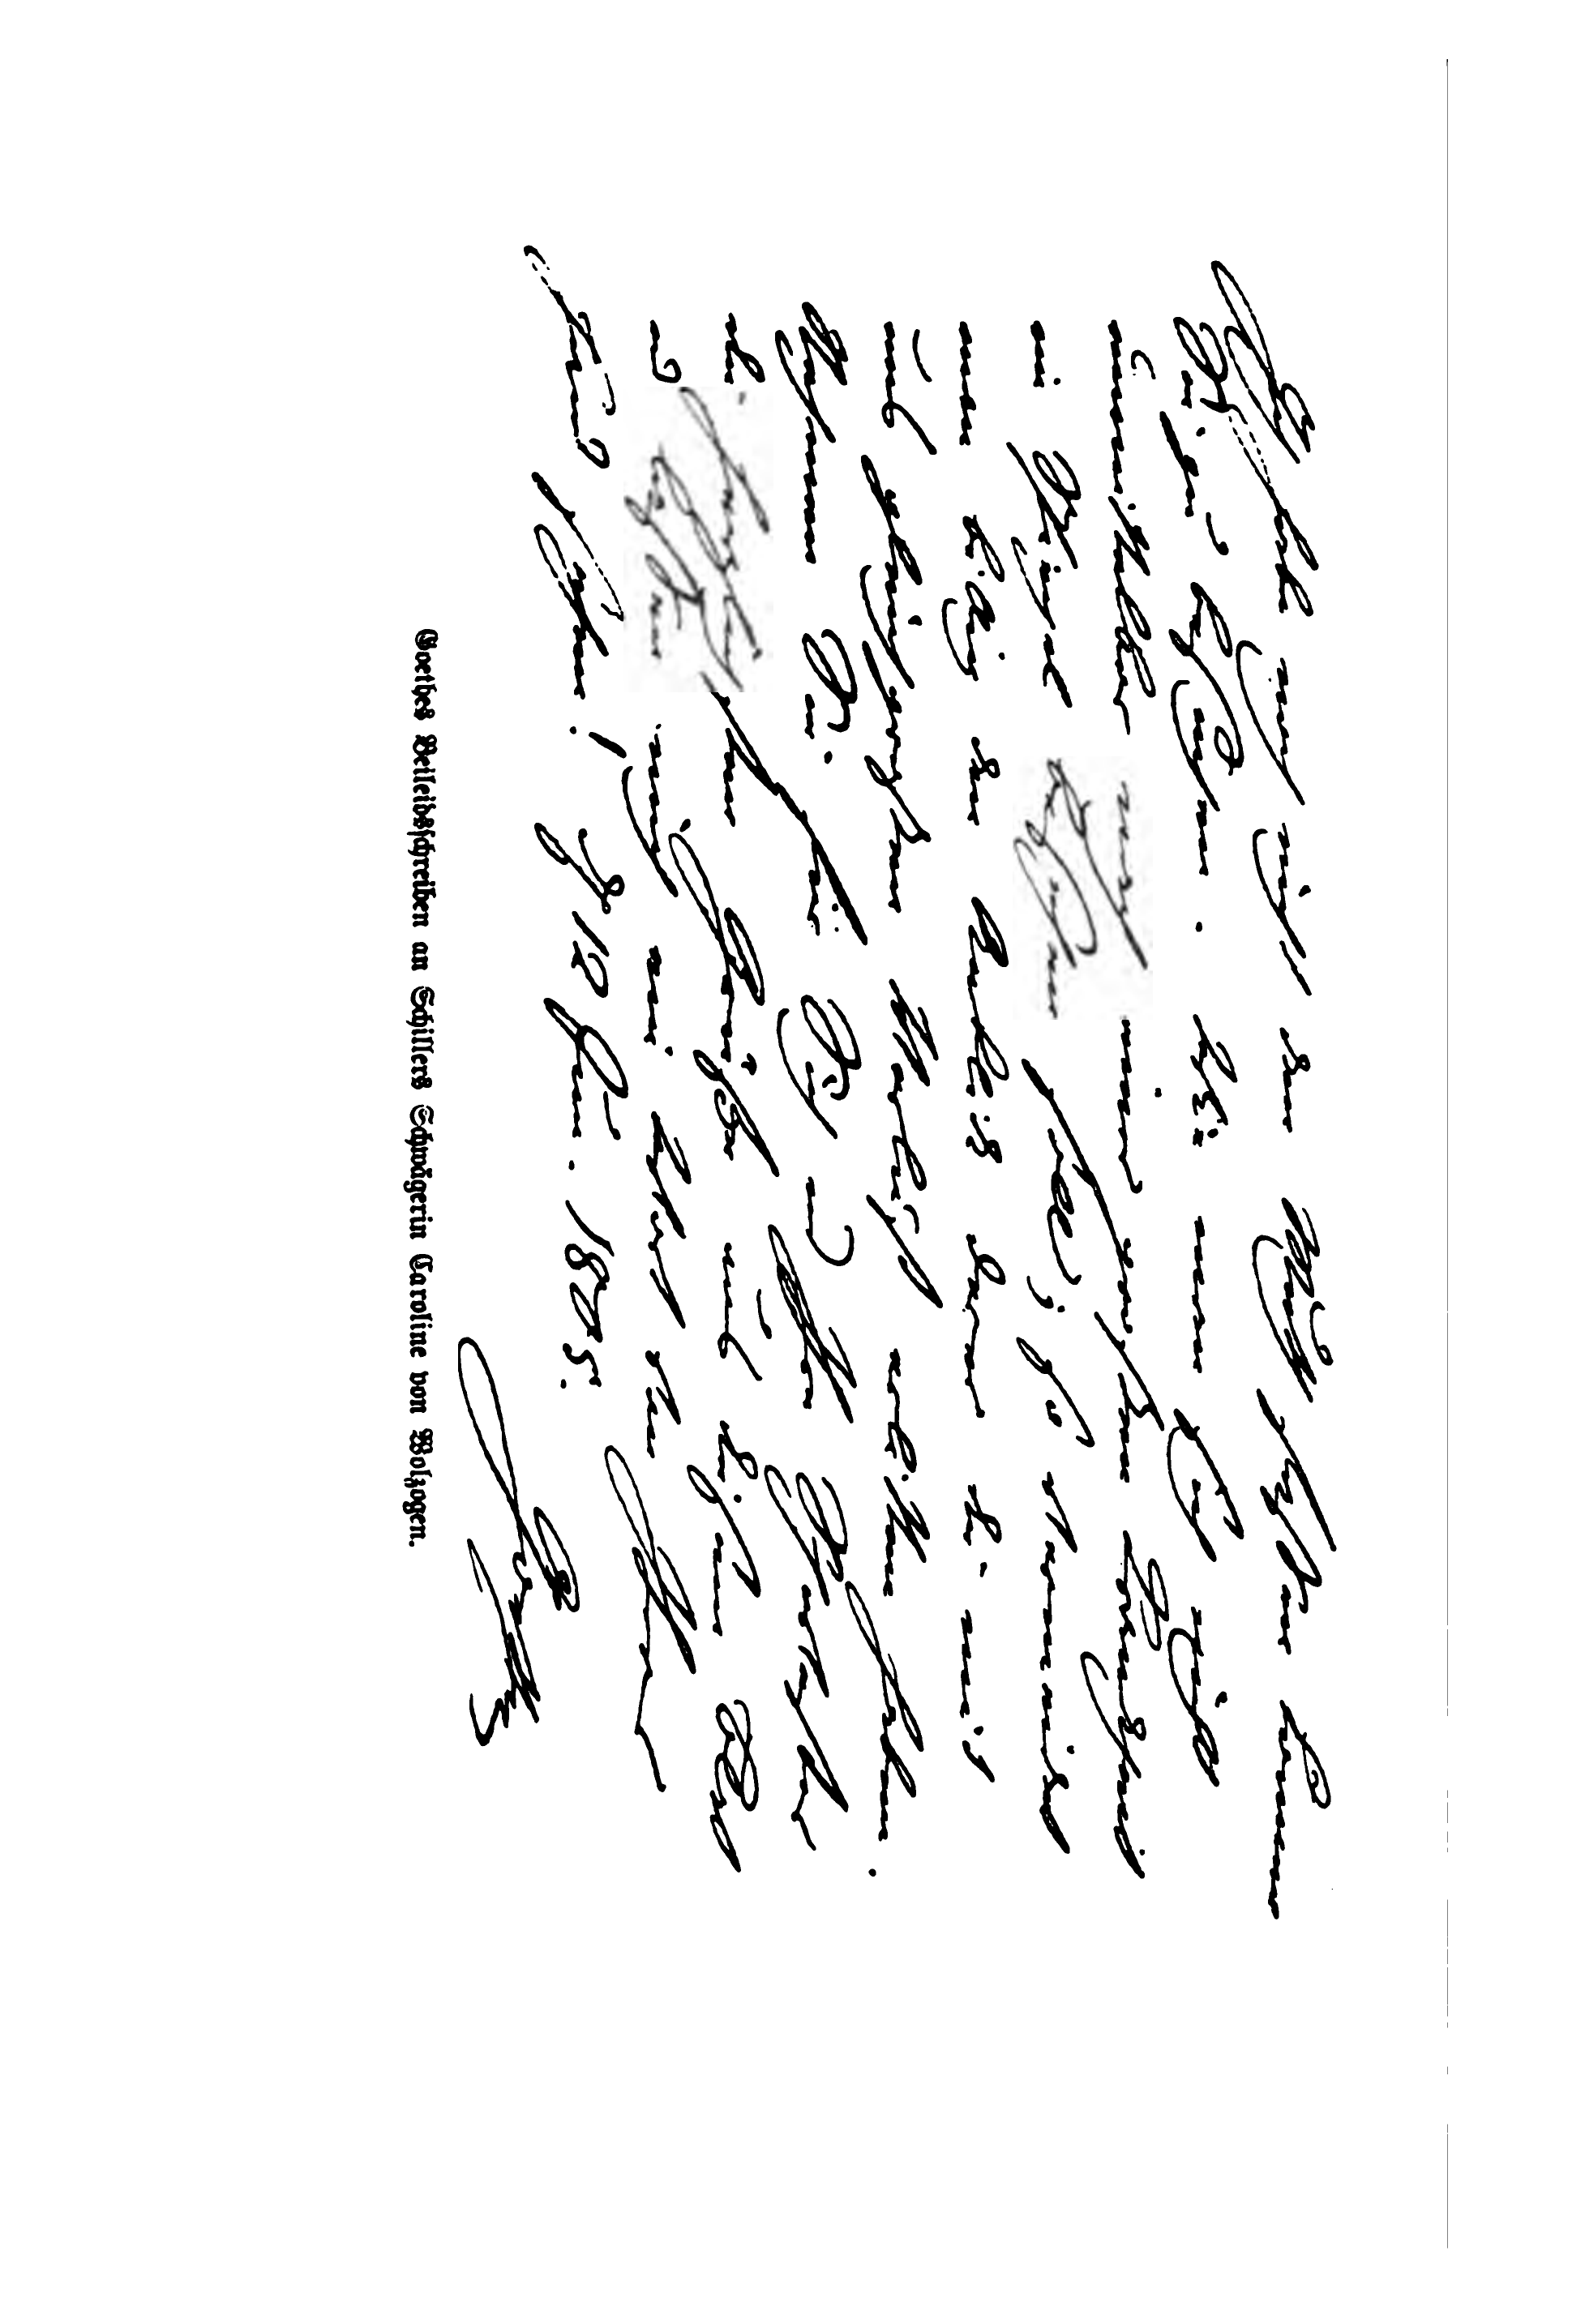 Ich habe noch nicht den Muth fassen können
Sie zu besuchen. Wie man sich nicht
unmittelbar nach einer großen Kranckheit
im Spiegel besehen soll; so vermeidet
man billig den Anblick derer die mit
uns gleich großen Verlust erlitten haben.
Nehmen Sie für Sich und Ihre Schwester
die herzlichsten Grüße aus diesem Blat
und lassen mich ein Wort von Ihrer
Hand sehen! d 12 Jun. 1805.
Goethe
Goethes Beileidsschreiben an Schillers Schwägerin Caroline von Wolzogen.